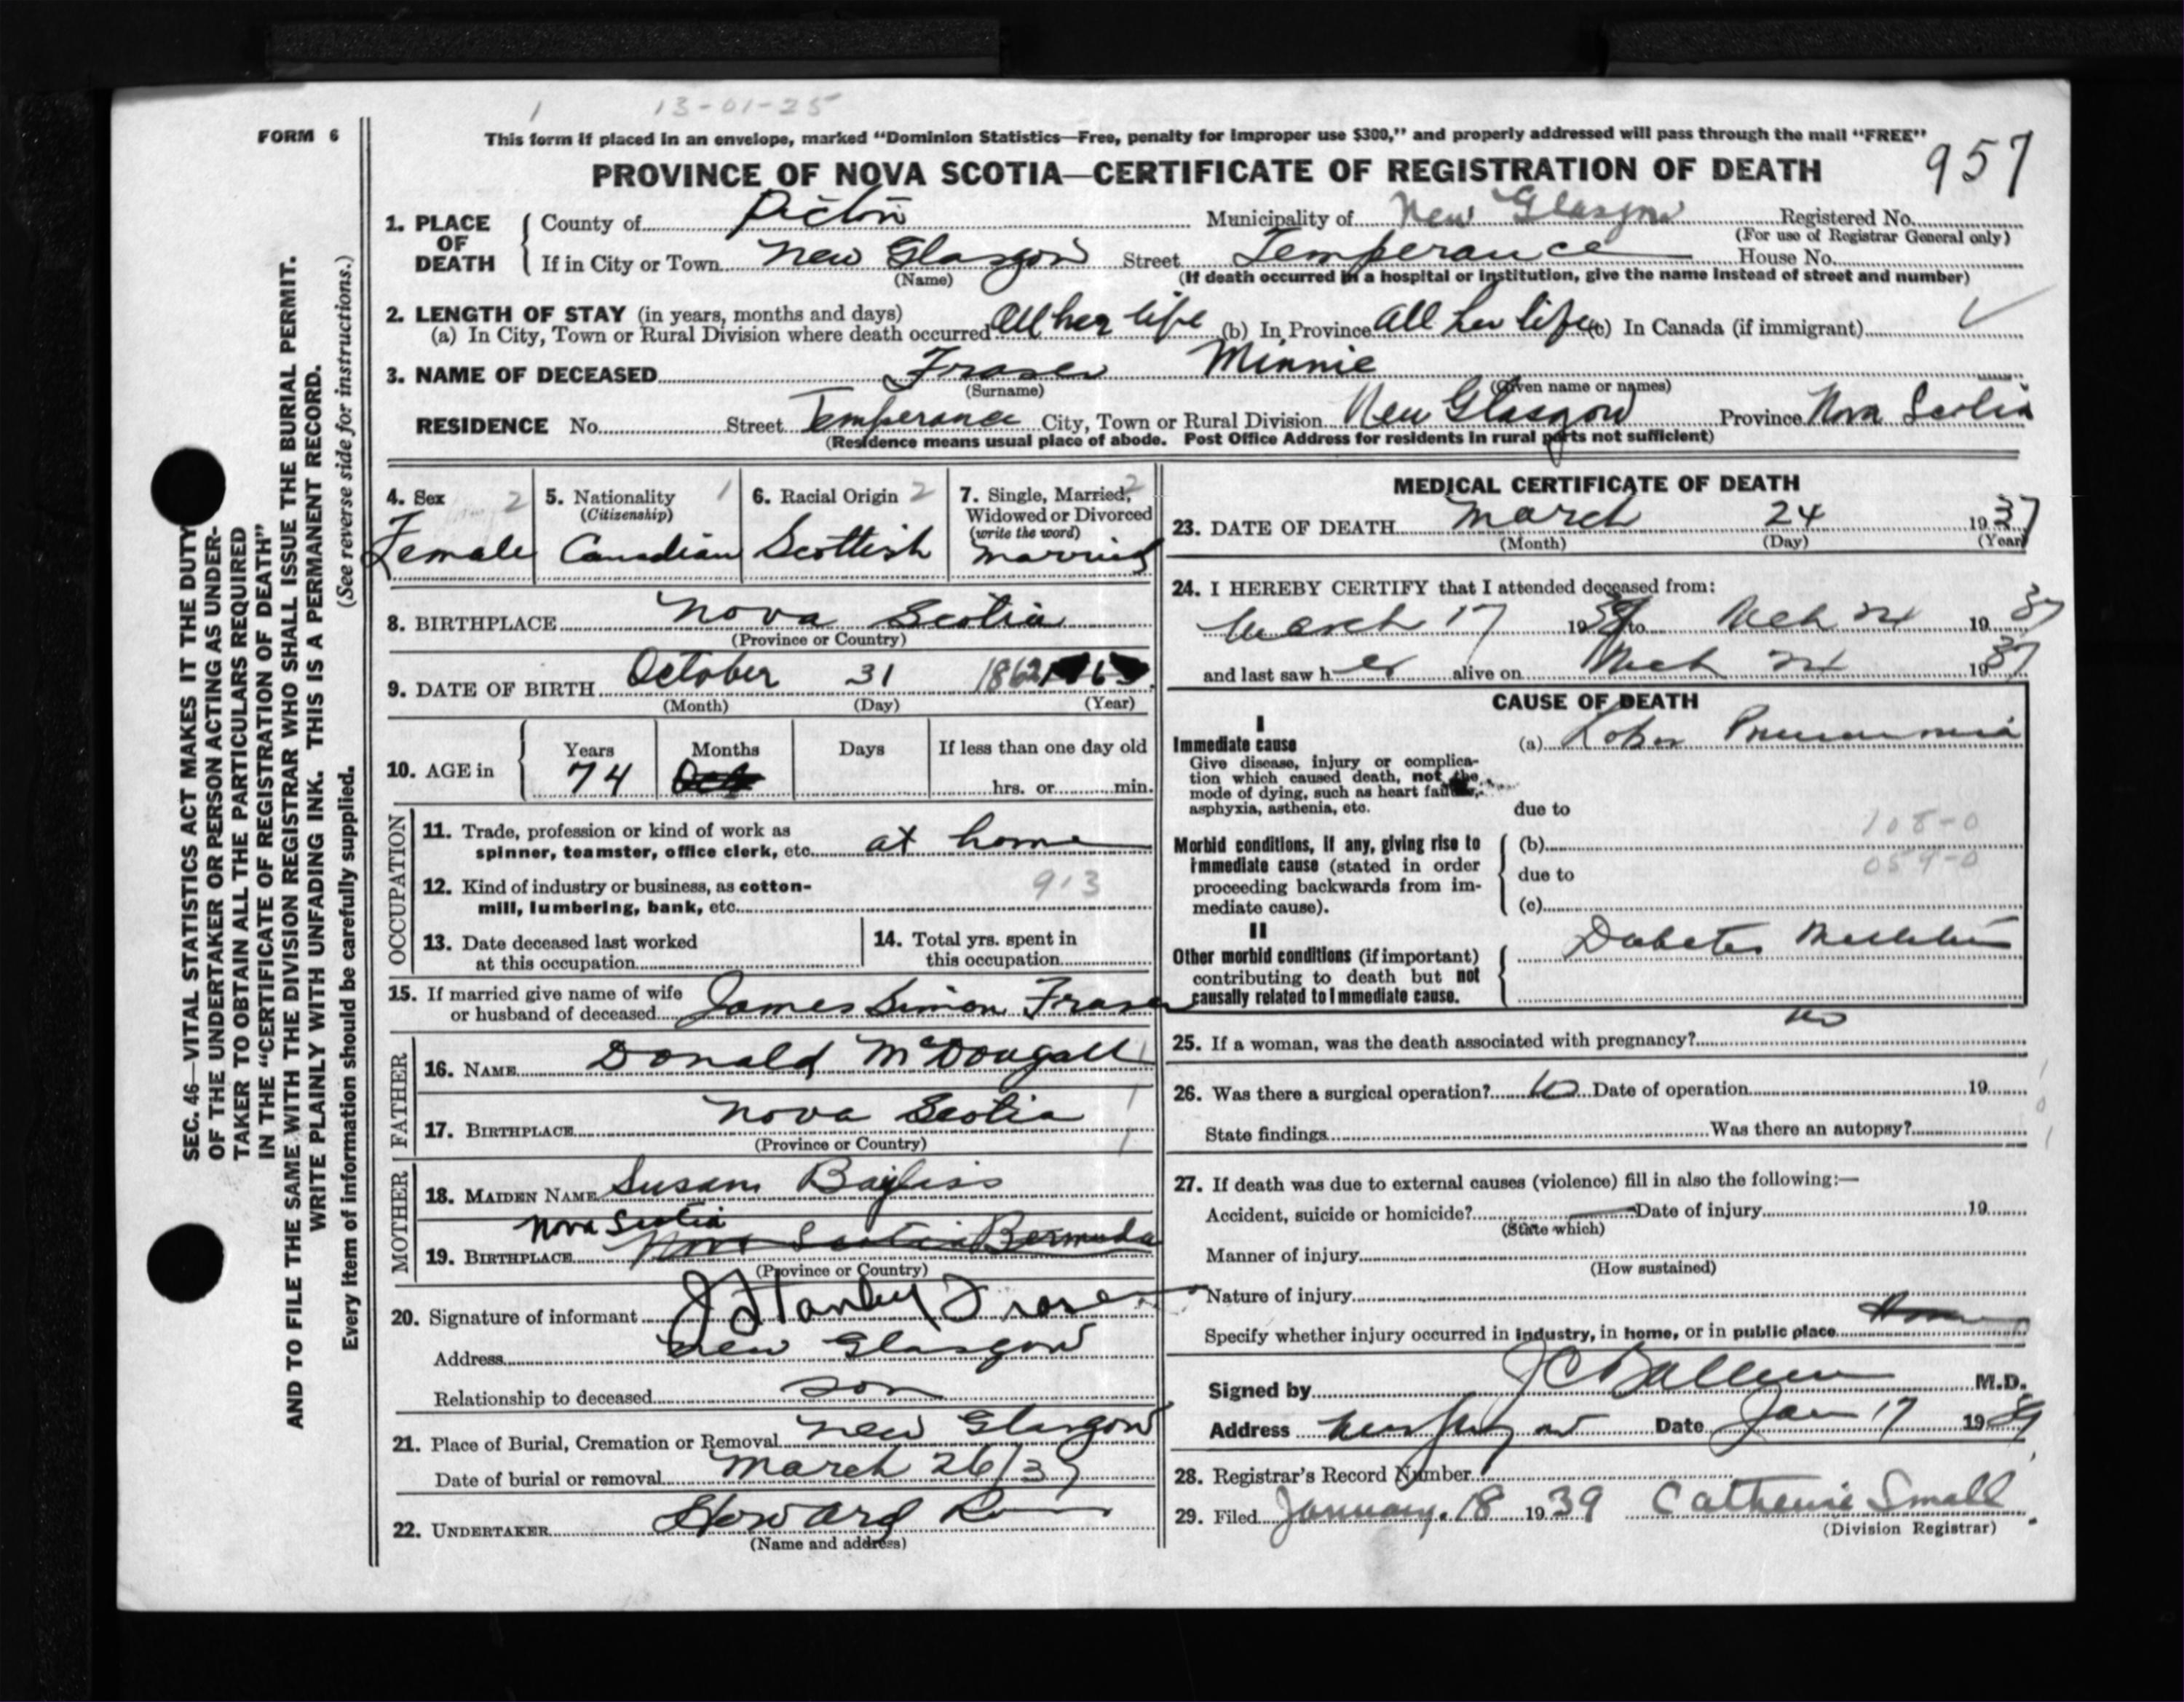 1 13-01-25
FORM 6
This form if placed in an envelope, marked "Dominion Statistics—Free, penalty for improper use $300," and properly addressed will pass through the mail "FREE"
957
PROVINCE OF NOVA SCOTIA—CERTIFICATE OF REGISTRATION OF DEATH
1. PLACE OF DEATH { County of Pictou Municipality of New Glasgow Registered No.
(For use of Registrar General only)
If in City or Town New Glasgow Street Temperance House No.
(Name) (If death occurred in a hospital or institution, give the name instead of street and number)
2. LENGTH OF STAY (in years, months and days)
(a) In City, Town or Rural Division where death occurred All her life (b) In Province All her life (c) In Canada (if immigrant)
3. NAME OF DECEASED Fraser Minnie
(Surname) (Given name or names)
RESIDENCE No. Street Temperance City, Town or Rural Division New Glasgow Province Nova Scotia
(Residence means usual place of abode. Post Office Address for residents in rural parts not sufficient)
4. Sex 2
Female
5. Nationality 1
(Citizenship)
Canadian
6. Racial Origin 2
Scottish
7. Single, Married, 2
Widowed or Divorced
(write the word)
Married
8. BIRTHPLACE Nova Scotia
(Province or Country)
9. DATE OF BIRTH October 31 1862
(Month) (Day) (Year)
10. AGE in { Years Months Days If less than one day old
74 hrs. or min.
OCCUPATION
11. Trade, profession or kind of work as
spinner, teamster, office clerk, etc. at home
12. Kind of industry or business, as cotton-
mill, lumbering, bank, etc. 913
13. Date deceased last worked
at this occupation
14. Total yrs. spent in
this occupation
15. If married give name of wife
or husband of deceased James Simon Fraser
FATHER
16. NAME Donald McDougall
17. BIRTHPLACE Nova Scotia
(Province or Country)
MOTHER
18. MAIDEN NAME Susam Bayliss
Nova Scotia
19. BIRTHPLACE Nova Scotia Bermuda
(Province or Country)
20. Signature of informant J Stanley Fraser
Address New Glasgow
Relationship to deceased son
21. Place of Burial, Cremation or Removal New Glasgow
Date of burial or removal March 26/37
22. UNDERTAKER Howard
(Name and address)
MEDICAL CERTIFICATE OF DEATH
23. DATE OF DEATH March 24 1937
(Month) (Day) (Year)
24. I HEREBY CERTIFY that I attended deceased from:
March 17 1937 to Mch 24 1937
and last saw her alive on Mch 24 1937
CAUSE OF DEATH
I
Immediate cause
Give disease, injury or complica-
tion which caused death, not the
mode of dying, such as heart failure,
asphyxia, asthenia, etc.
(a) Lobar Pneumonia
due to
108-0
Morbid conditions, if any, giving rise to
immediate cause (stated in order
proceeding backwards from im-
mediate cause).
(b)
059-0
due to
(c)
II
Other morbid conditions (if important)
contributing to death but not
causally related to immediate cause.
Diabetes Mellitus
25. If a woman, was the death associated with pregnancy? no
26. Was there a surgical operation? no Date of operation 19
State findings Was there an autopsy?
27. If death was due to external causes (violence) fill in also the following:—
Accident, suicide or homicide? Date of injury 19
(State which)
Manner of injury
(How sustained)
Nature of injury
Specify whether injury occurred in industry, in home, or in public place
Signed by J C Ballem M.D.
Address New Glasgow Date Jan 17 1939
28. Registrar's Record Number
29. Filed January 18 1939 Catherine Small
(Division Registrar)
SEC. 46—VITAL STATISTICS ACT MAKES IT THE DUTY
OF THE UNDERTAKER OR PERSON ACTING AS UNDER-
TAKER TO OBTAIN ALL THE PARTICULARS REQUIRED
IN THE "CERTIFICATE OF REGISTRATION OF DEATH"
AND TO FILE THE SAME WITH THE DIVISION REGISTRAR WHO SHALL ISSUE THE BURIAL PERMIT.
WRITE PLAINLY WITH UNFADING INK. THIS IS A PERMANENT RECORD.
Every item of information should be carefully supplied. (See reverse side for instructions.)